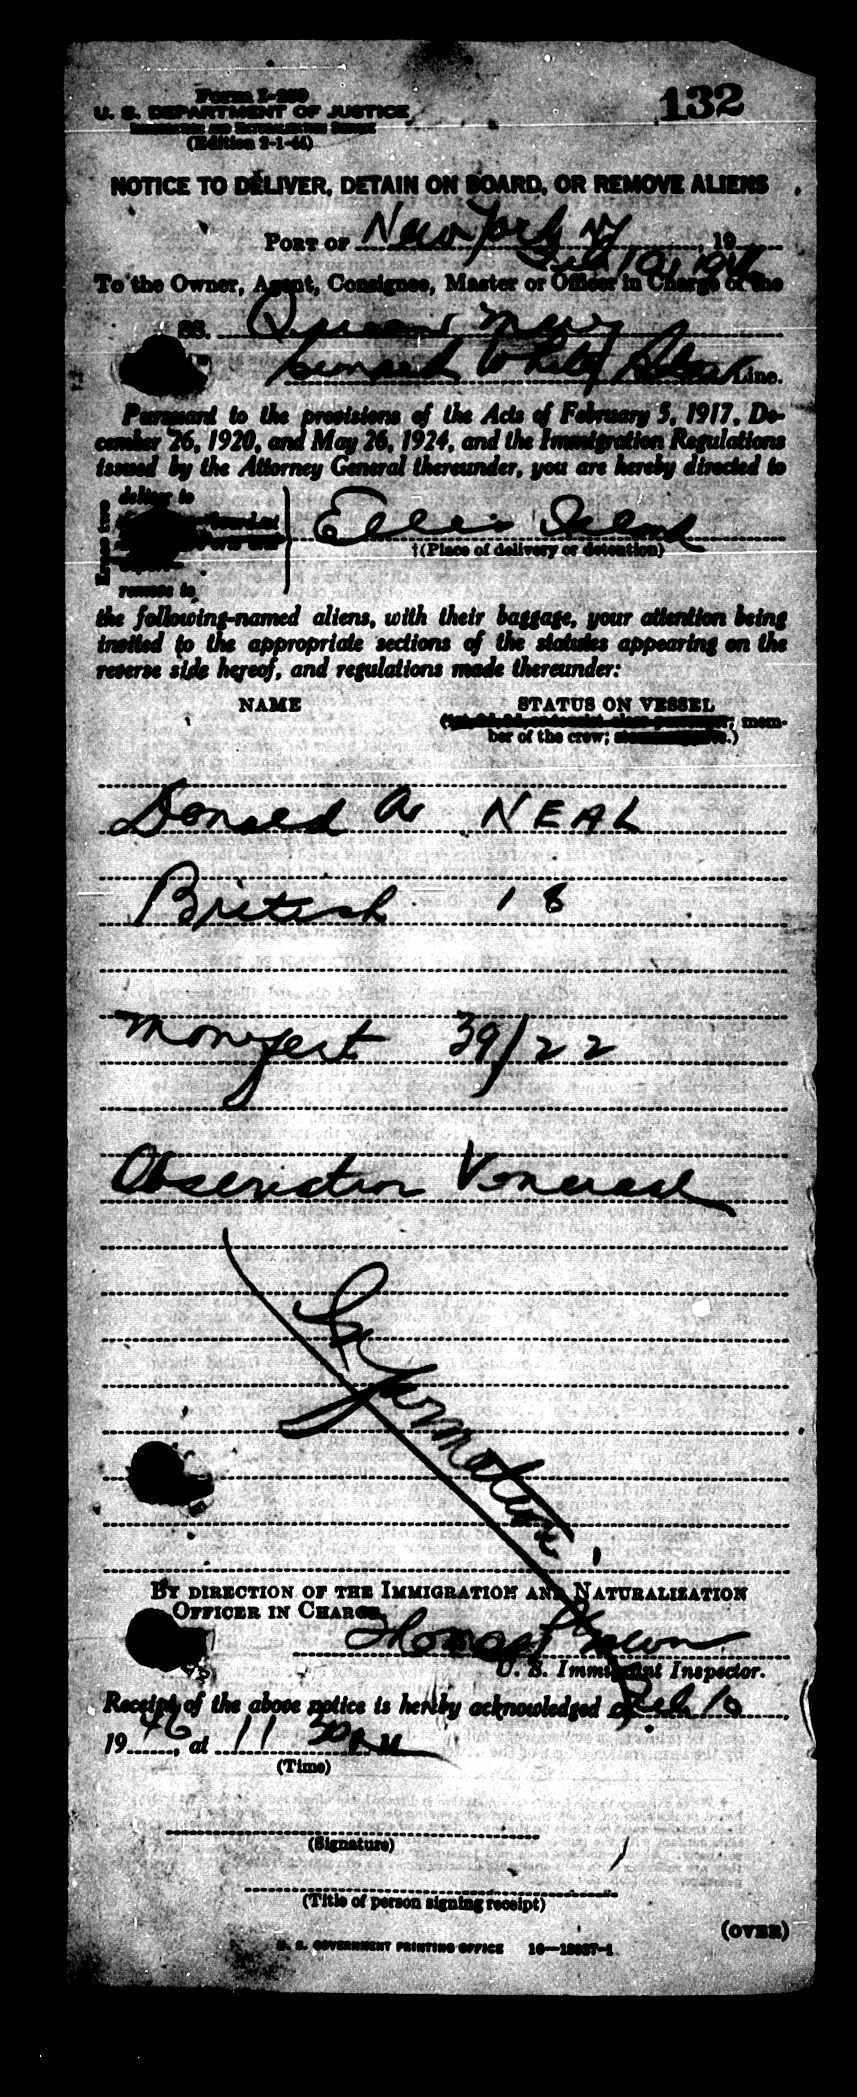 Form I-259
132
U. S. DEPARTMENT OF JUSTICE
IMMIGRATION AND NATURALIZATION SERVICE
(Edition 2-1-44)
NOTICE TO DELIVER, DETAIN ON BOARD, OR REMOVE ALIENS
PORT OF New York NY, 19
Feb 10, 1946
To the Owner, Agent, Consignee, Master or Officer in Charge of the
SS. Queen Mary
Cunard White Star Line.
Pursuant to the provisions of the Acts of February 5, 1917, De-
cember 26, 1920, and May 26, 1924, and the Immigration Regulations
issued by the Attorney General thereunder, you are hereby directed to
deliver to
Ellis Island
†(Place of delivery or detention)
remove to
the following-named aliens, with their baggage, your attention being
invited to the appropriate sections of the statutes appearing on the
reverse side hereof, and regulations made thereunder:
NAME STATUS ON VESSEL
mem-
ber of the crew;
Donald A NEAL
British 18
Manifest 39/22
Observation Venereal
Information
BY DIRECTION OF THE IMMIGRATION AND NATURALIZATION
OFFICER IN CHARGE.
U. S. Immigrant Inspector.
Receipt of the above notice is hereby acknowledged Feb 10,
19 46, at 11 30 AM
(Time)
(Signature)
(Title of person signing receipt)
(OVER)
U. S. GOVERNMENT PRINTING OFFICE 16—18637-1